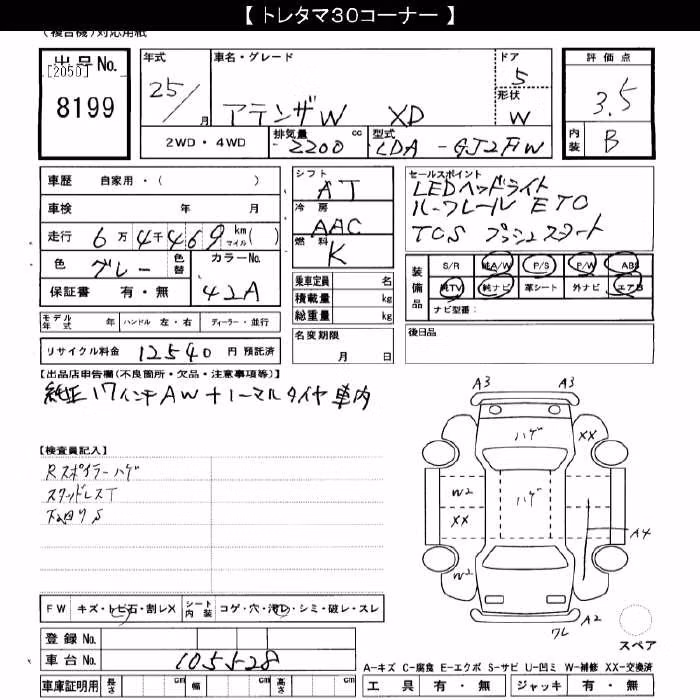 【 トレタマ30コーナー 】
(複合機)対応用紙
出品No.
[2050]
8199
年式
25/
月
車名・グレード
アテンザW XD
ドア
5
形状
W
評価点
3.5
内装
B
2WD・4WD
排気量
2200
cc
型式
LDA-GJ2FW
車歴 自家用・( )
車検 年 月
走行 6万4千469 km マイル( )
色 グレー
色替
カラーNo.
42A
保証書 有・無
シフト
AT
冷房
AAC
燃料
K
乗車定員 名
積載量 kg
総重量 kg
名変期限
月 日
セールスポイント
LEDヘッドライト
ルーフレール ETC
TCS プッシュスタート
装備品
S/R 純A/W P/S P/W ABS
純TV 純ナビ 革シート 外ナビ エアB
ナビ型番:
後日品
モデル年式 年 ハンドル 左・右 ディーラー・並行
リサイクル料金 12540 円 預託済
【出品店申告欄(不良箇所・欠品・注意事項等)】
純正17インチAW+ノーマルタイヤ車内
【検査員記入】
Rスポイラーハゲ
スタッドレスT
下回りS
A3 A3
ハゲ XX
W2 ハゲ
XX A4
W2
ワレ A2
スペア
FW キズ・トビ石・割レX シート内装 コゲ・穴・汚レ・シミ・破レ・スレ
登録No.
車台No. 105528
A-キズ C-腐食 E-エクボ S-サビ U-凹ミ W-補修 XX-交換済
車庫証明用 長さ cm 幅 cm 高さ cm
工具 有・無 ジャッキ 有・無